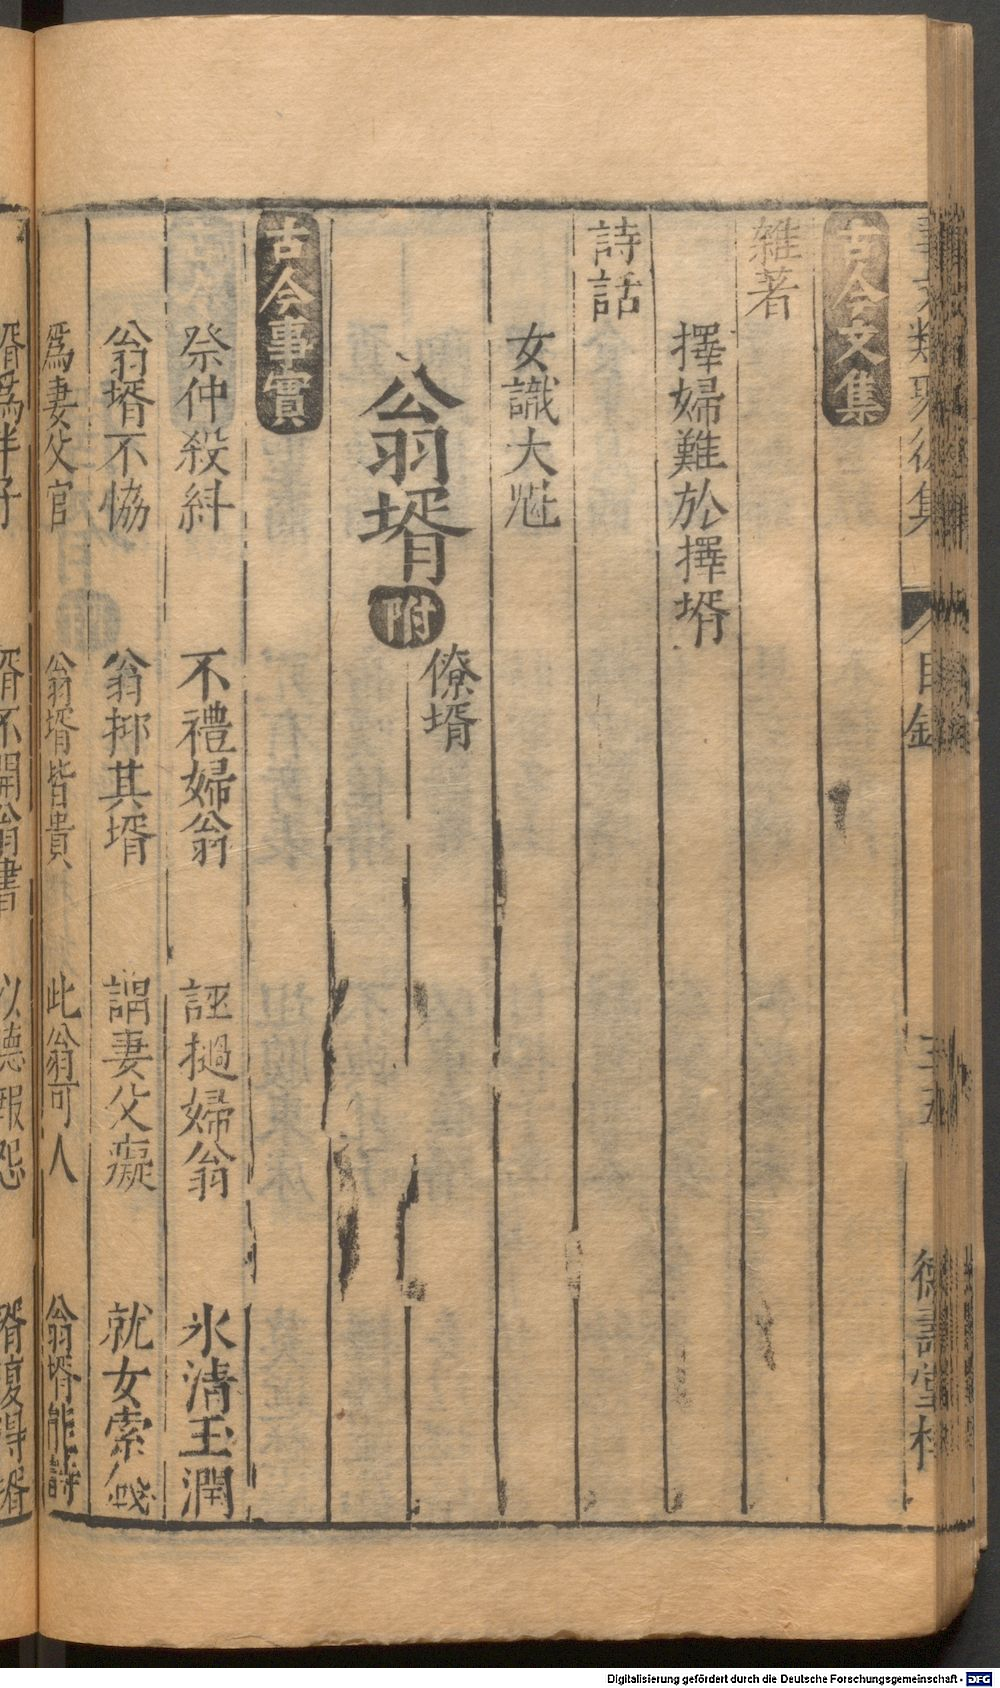 事文類聚後集 目錄 三五 德壽堂梓
古今文集
雜著
擇婦難於擇壻
詩話
女識大魁
翁壻 附 僚壻
古今事實
祭仲殺糾 不禮婦翁 誣撾婦翁 氷清玉潤
翁壻不協 翁抑其壻 謂妻父癡 就女索錢
爲妻父官 翁壻皆貴 此翁可人 翁壻能詩
壻爲半子 壻不開翁書 以德報怨 壻復得壻
Digitalisierung gefördert durch die Deutsche Forschungsgemeinschaft - DFG